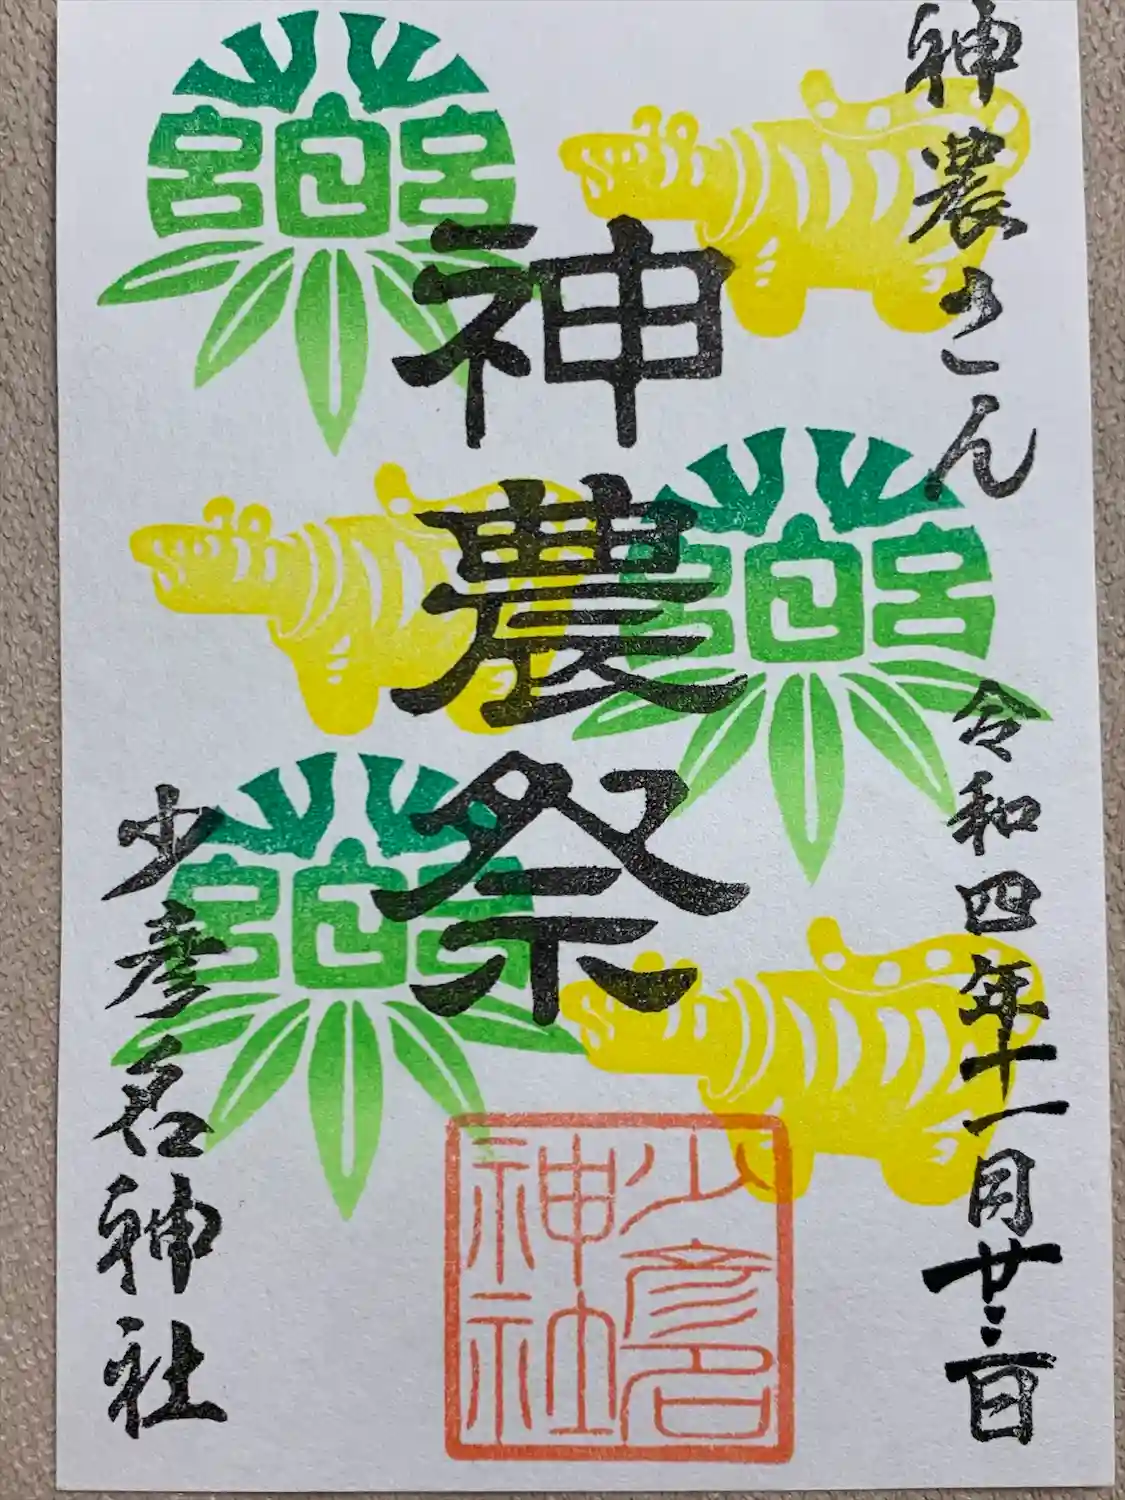 神農さん
令和四年十一月廿三日
神農祭
少彦名
神社
少彦名神社